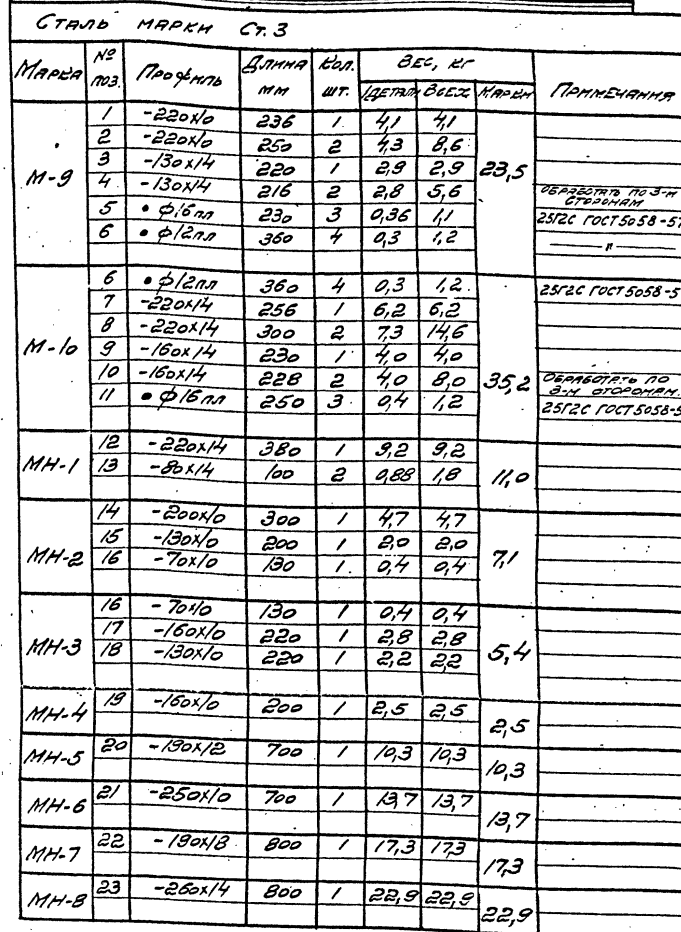 Сталь марки Ст. 3
Марка № поз. Профиль Длина мм Кол. шт. Вес, кг Примечания
1 детали Всех Марки
М-9 23,5
1 -220х10 236 1 4,1 4,1
2 -220х10 250 2 4,3 8,6
3 -130х14 220 1 2,9 2,9
4 -130х14 216 2 2,8 5,6 Обработать по 3-м сторонам
5 • ф16пл 230 3 0,36 1,1 25Г2С ГОСТ 5058-57
6 • ф12пл 360 4 0,3 1,2 — " —
М-10 35,2
6 • ф12пл 360 4 0,3 1,2 25Г2С ГОСТ 5058-5
7 -220х14 256 1 6,2 6,2
8 -220х14 300 2 7,3 14,6
9 -160х14 230 1 4,0 4,0
10 -160х14 228 2 4,0 8,0 Обработать по 3-м сторонам.
11 • ф16пл 250 3 0,4 1,2 25Г2С ГОСТ 5058-5
МН-1 11,0
12 -220х14 380 1 9,2 9,2
13 -80х14 100 2 0,88 1,8
МН-2 7,1
14 -200х10 300 1 4,7 4,7
15 -130х10 200 1 2,0 2,0
16 -70х10 130 1 0,4 0,4
МН-3 5,4
16 -70х10 130 1 0,4 0,4
17 -160х10 220 1 2,8 2,8
18 -130х10 220 1 2,2 2,2
МН-4 19 -160х10 200 1 2,5 2,5 2,5
МН-5 20 -190х12 700 1 10,3 10,3 10,3
МН-6 21 -250х10 700 1 13,7 13,7 13,7
МН-7 22 -190х18 800 1 17,3 17,3 17,3
МН-8 23 -260х14 800 1 22,9 22,9 22,9